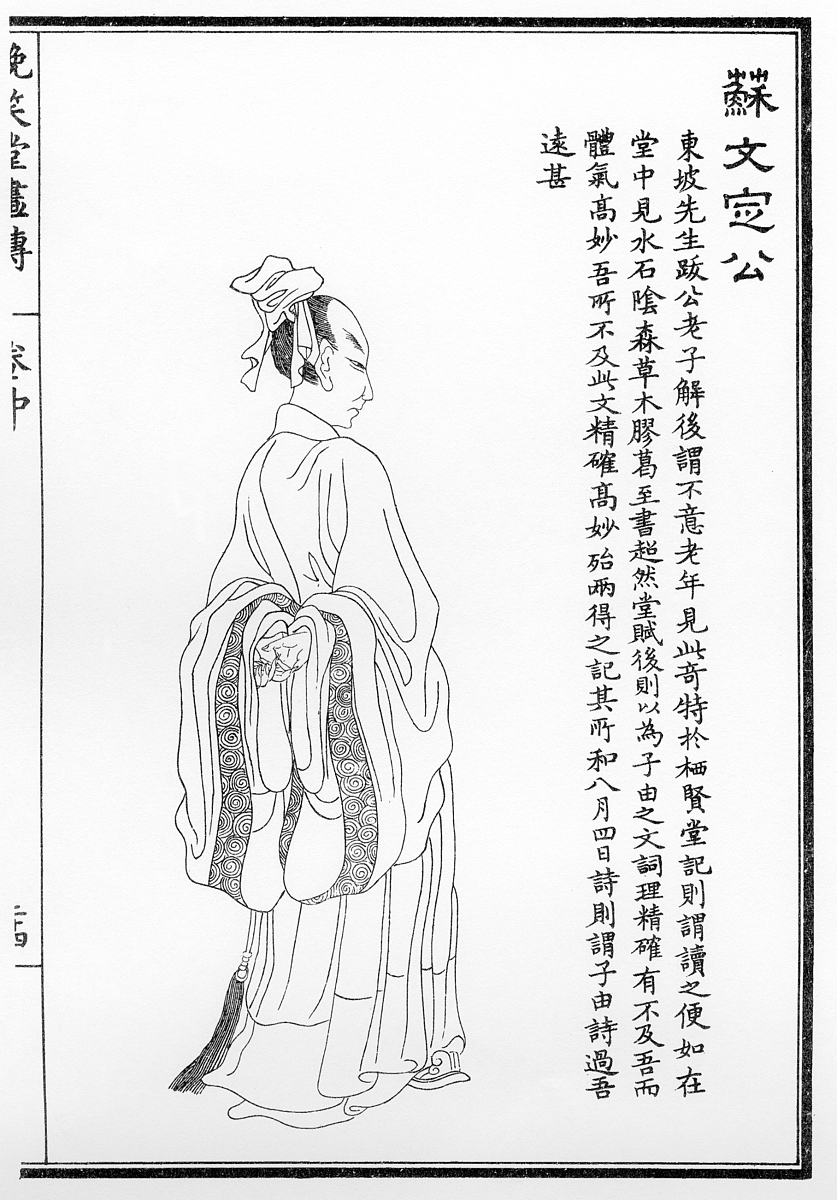 蘇文定公
東坡先生跋公老子解後謂不意老年見此奇特於栖賢堂記則謂讀之便如在
堂中見水石陰森草木膠葛至書超然堂賦後則以為子由之文詞理精確有不及吾而
體氣高妙吾所不及此文精確高妙殆兩得之記其所和八月四日詩則謂子由詩過吾
遠甚
晚笑堂畫傳
卷中